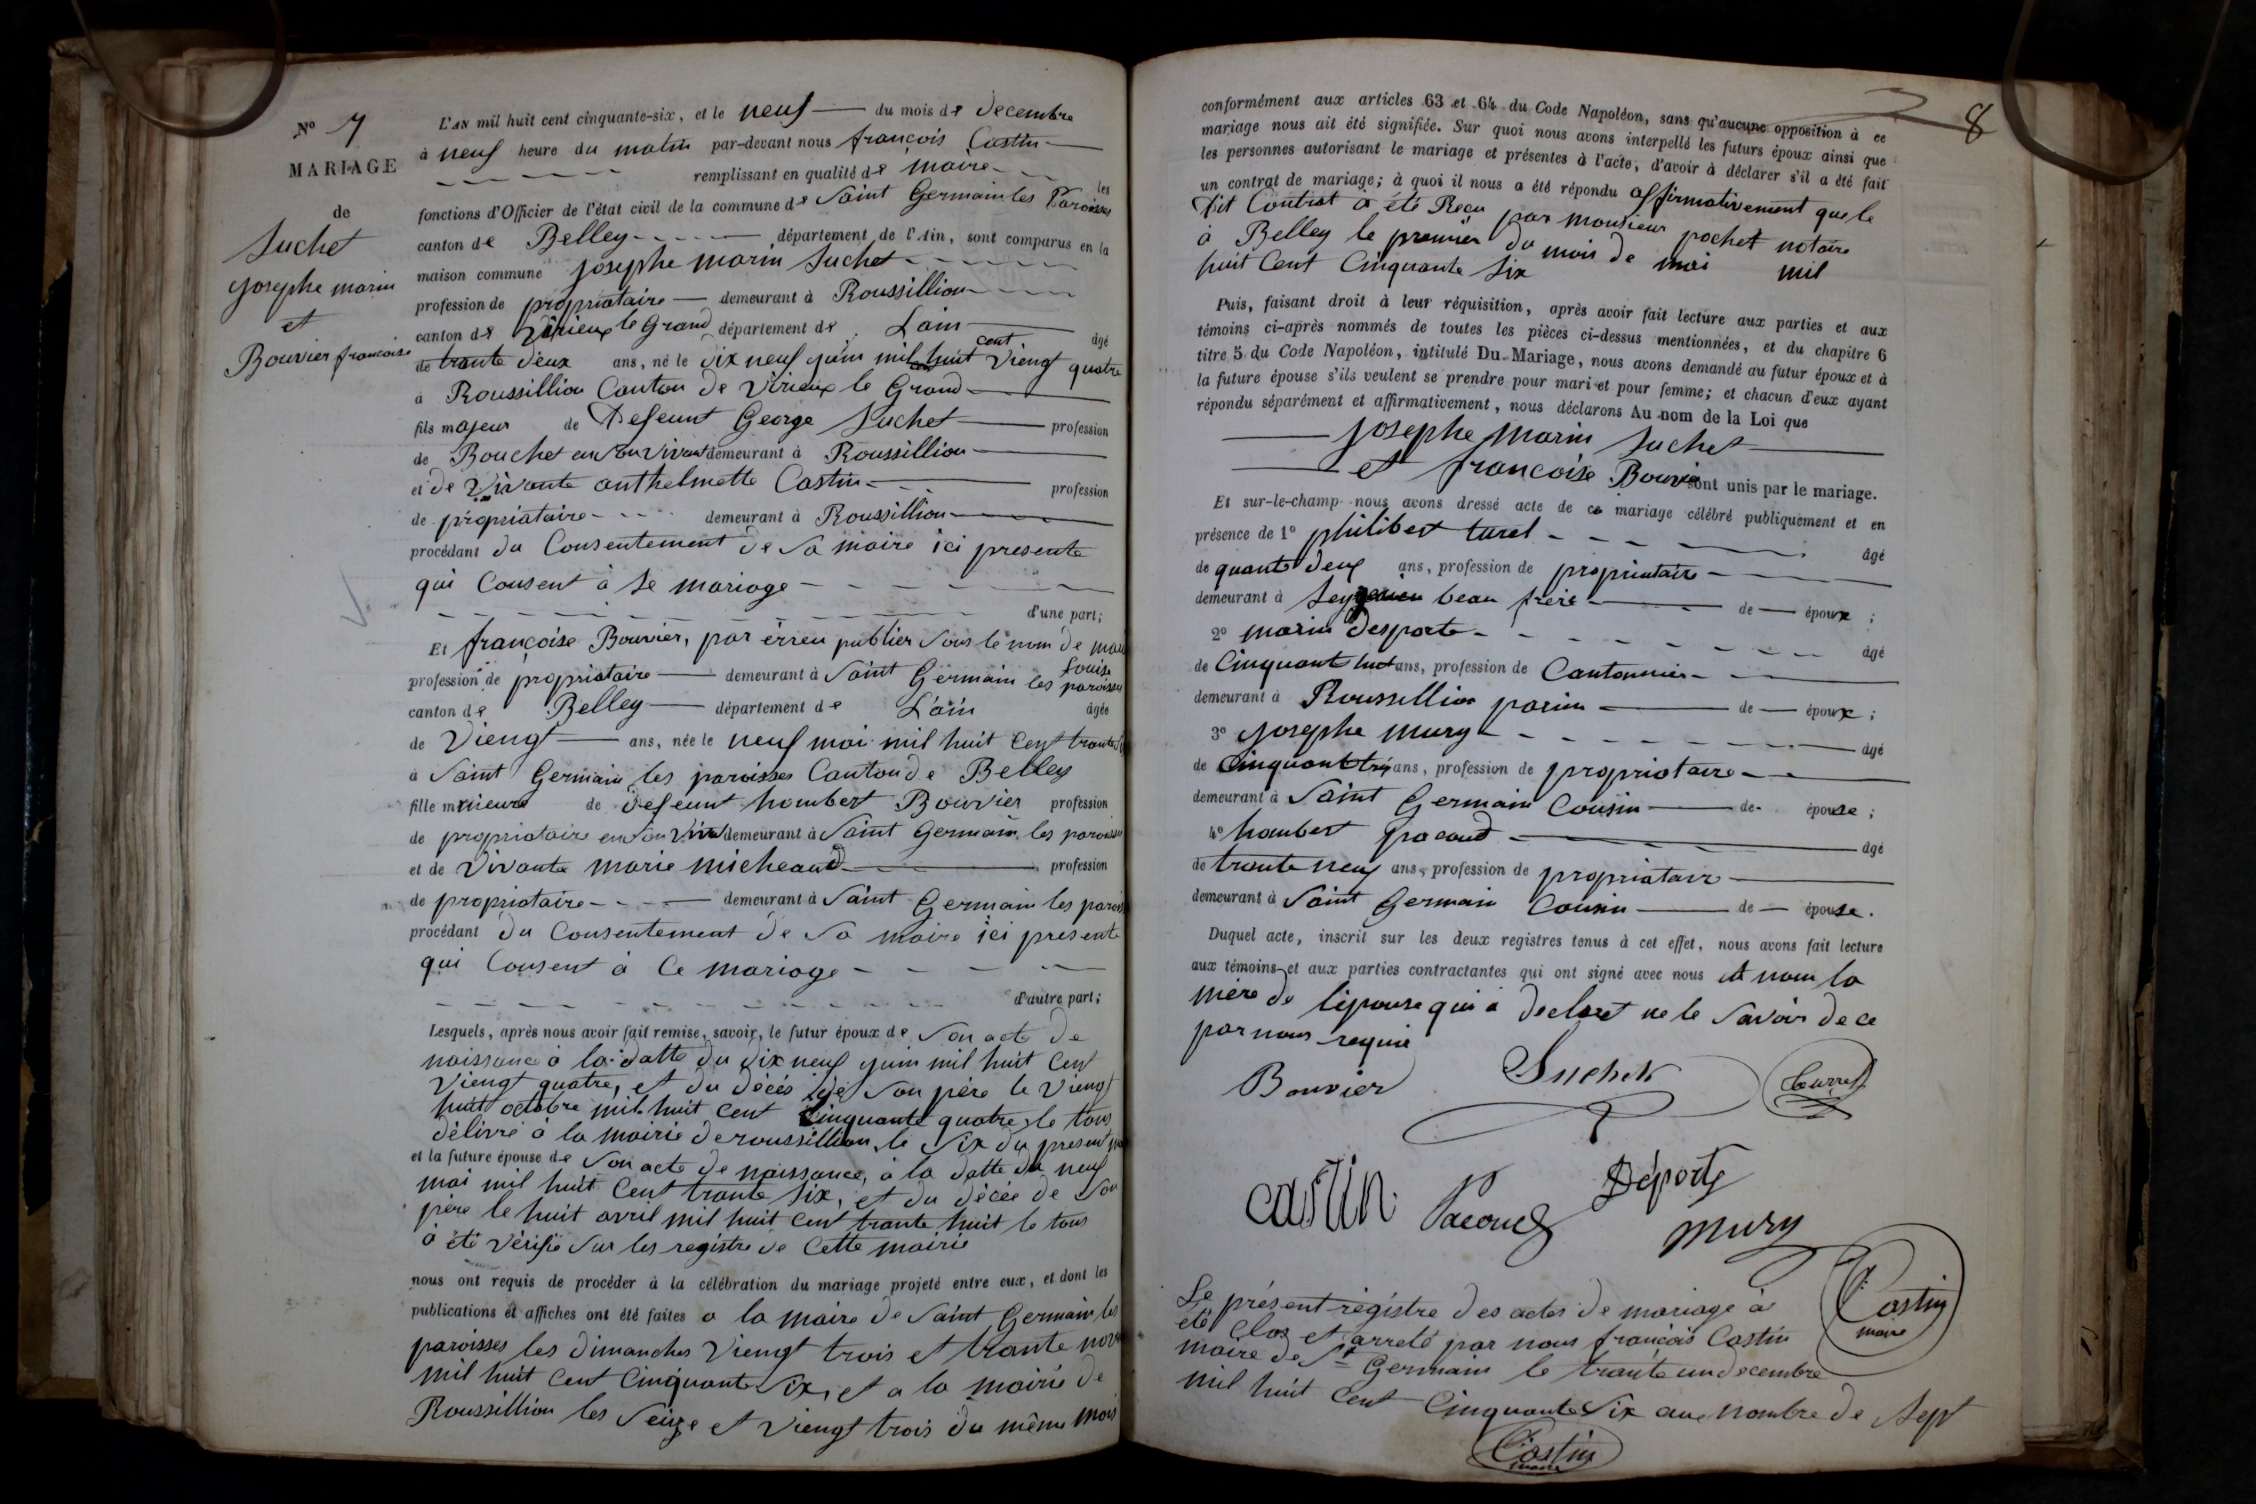 Nº 7
MARIAGE
de
Suchet
Josephe marin
et
Bouvier francoise
L'AN mil huit cent cinquante-six, et le neuf du mois de decembre
à neuf heure du matin par-devant nous françois Castin
remplissant en qualité de maire les
fonctions d'Officier de l'état civil de la commune de Saint Germain les Paroisses
canton de Belley département de l'Ain, sont comparus en la
maison commune Josephe marin Suchet
profession de propriataire demeurant à Roussillion
canton de Virieux le Grand département de Lain âgé
de trante deux ans, né le dix neuf juin mil huit cent viengt quatre
à Roussillion Canton de Virieux le Grand
fils majeur de Defeunt George Suchet profession
de Boucher en son vivant demeurant à Roussillion
et de Vivante anthelmette Castin profession
de propriataire demeurant à Roussillion
procédant du Consentement de Sa maire ici presente
qui Consent à se mariage
d'une part;
Et françoise Bouvier, par erreu publier sous le nom de
Louise
profession de propriataire demeurant à Saint Germain les paroisses
canton de Belley département de L'ain âgée
de Viengt ans, née le neuf mai mil huit cent trante
à Saint Germain les paroisses Canton de Belley
fille mineure de defeunt hombert Bouvier profession
de propriataire en son vivan demeurant à Saint Germain les paroisses
et de Vivante marie micheaud profession
de propriataire demeurant à Saint Germain les
procédant du Consentement de Sa maire ici presente
qui Consent à Ce mariage
d'autre part;
Lesquels, après nous avoir fait remise, savoir, le futur époux de Son acte de
naissance à la datte du dix neuf juin mil huit cent
viengt quatre, et du décés de son père le viengt
huit octobre mil huit cent cinquante quatre le tous
délivré à la mairie de roussillion le Six du present
et la future épouse de Son acte de naissance, à la datte du neuf
mai mil huit Cent trante six, et du décée de Son
père le huit avril mil huit cent trante huit le tous
à été vérifié sur les registre de Cette mairie
nous ont requis de procéder à la célébration du mariage projeté entre eux, et dont les
publications et affiches ont été faites a la maire de Saint Germain les
paroisses les dimanches viengt trois et trante
mil huit cent Cinquante Six, et a la mairie de
Roussillion les Seize et viengt trois du même mois
8
conformément aux articles 63 et 64 du Code Napoléon, sans qu'aucune opposition à ce
mariage nous ait été signifiée. Sur quoi nous avons interpellé les futurs époux ainsi que
les personnes autorisant le mariage et présentes à l'acte, d'avoir à déclarer s'il a été fait
un contrat de mariage; à quoi il nous a été répondu affirmativement que le
dit Contrat à été Reçu par monsieur pochet notaire
à Belley le premier du mois de mai mil
huit Cent Cinquante Six
Puis, faisant droit à leur réquisition, après avoir fait lecture aux parties et aux
témoins ci-après nommés de toutes les pièces ci-dessus mentionnées, et du chapitre 6
titre 5 du Code Napoléon, intitulé Du Mariage, nous avons demandé au futur époux et à
la future épouse s'ils veulent se prendre pour mari et pour femme; et chacun d'eux ayant
répondu séparément et affirmativement, nous déclarons Au nom de la Loi que
Josephe marin Suchet
et francoise Bouvie sont unis par le mariage.
Et sur-le-champ nous avons dressé acte de ce mariage célébré publiquement et en
présence de 1º philibert turel âgé
de quante deux ans, profession de propriataire
demeurant à beau frère de époux ;
2º marin desporte âgé
de Cinquant huit ans, profession de Cantonnier
demeurant à Roussillion parin de époux ;
3º Josephe mury âgé
de Cinquant trois ans, profession de propriataire
demeurant à Saint Germain Cousin de épouse ;
4º hombert pacoud âgé
de trante neuf ans, profession de propriataire
demeurant à Saint Germain Cousin de épouse.
Duquel acte, inscrit sur les deux registres tenus à cet effet, nous avons fait lecture
aux témoins et aux parties contractantes qui ont signé avec nous et nom la
mère de l'épouse qui à declaret ne le savoir de ce
par nous requie
Bouvier
Suchet
castin
Pacoud
Déporte
mury
Castin
maire
Le présent registre des actes de mariage à
été Clos et arreté par nous françois Castin
maire de St Germain le trante un decembre
mil huit cent Cinquante Six aux nombre de Sept
Castin
maire